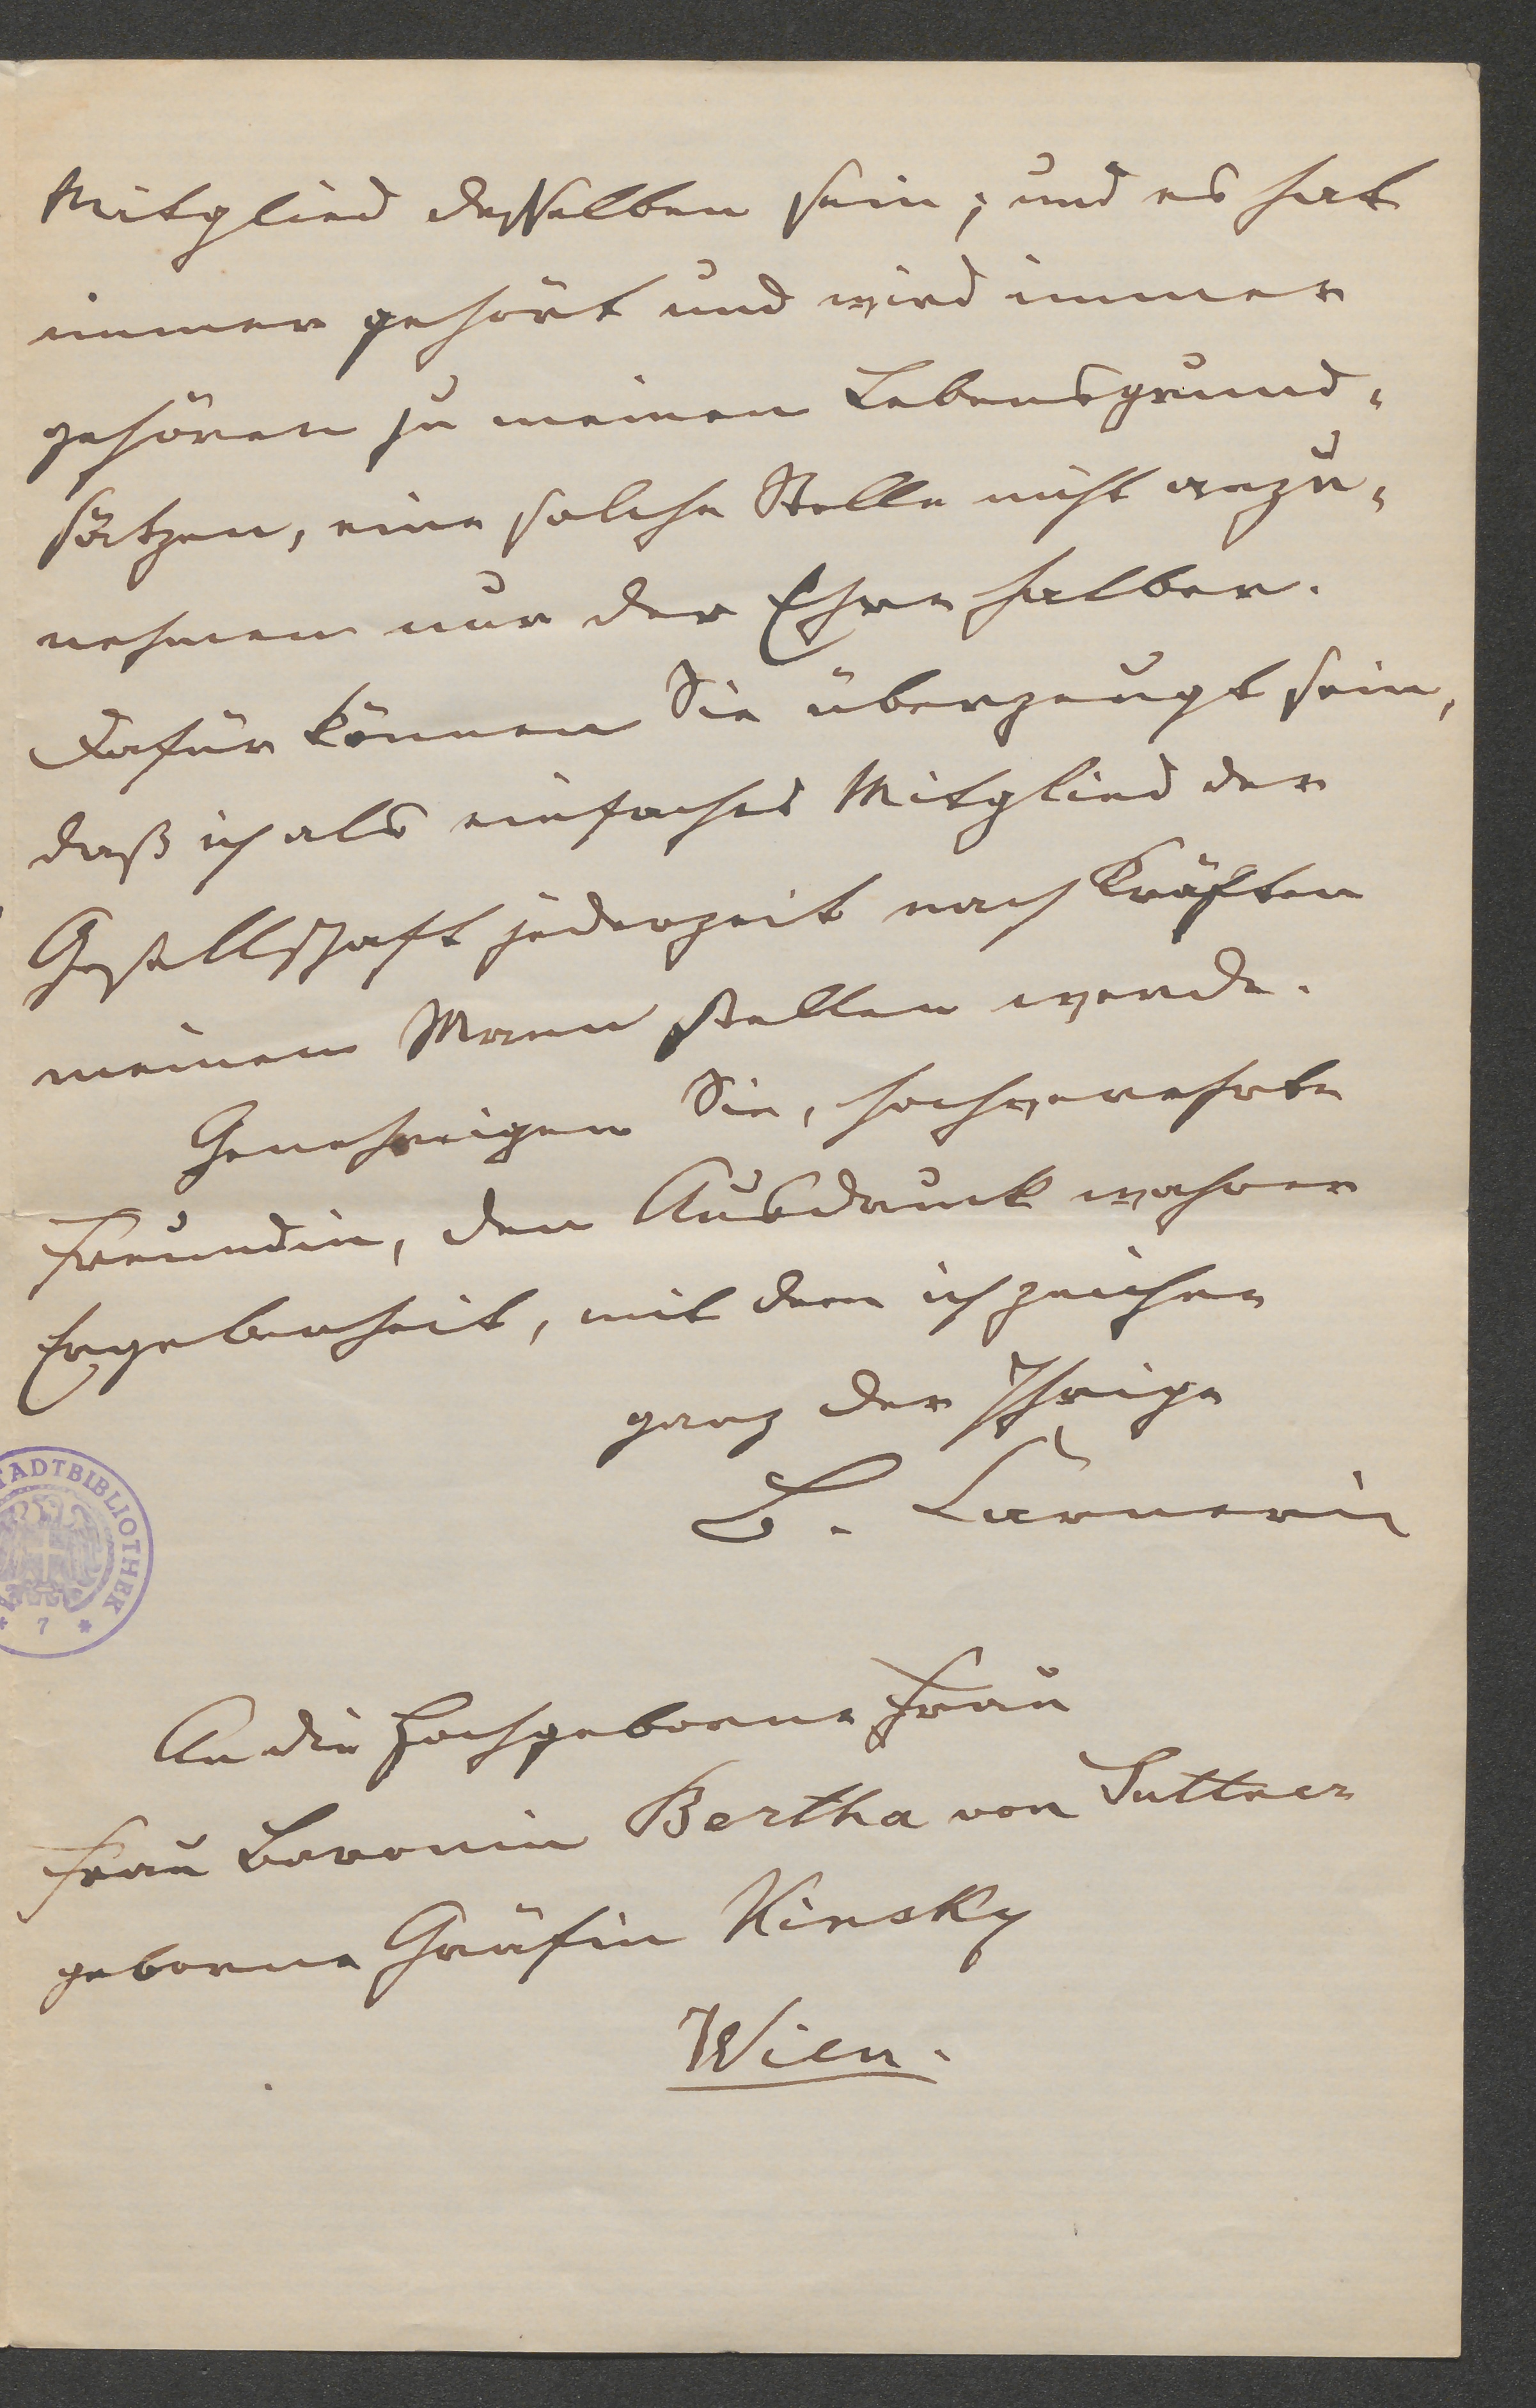 Mitglied desselben sein; und es hat
immer gehört und wird immer
gehören zu meinen Lebensgrund-
sätzen, eine solche Stelle nicht anzu-
nehmen nur der Ehre halber.
Dafür können Sie überzeugt sein,
daß ich als einfaches Mitglied der
Gesellschaft jederzeit nach Kräften
meinen Mann stellen werde.
Genehmigen Sie, hochverehrte
Freundin, den Ausdruck wahrer
Ergebenheit, mit dem ich zeichne
ganz der Ihrige
B. Carneri
STADTBIBLIOTHEK
* 7 *
An die Hochgeborne Frau
Frau Baronin Bertha von Suttner
geborne Gräfin Kinsky
Wien.